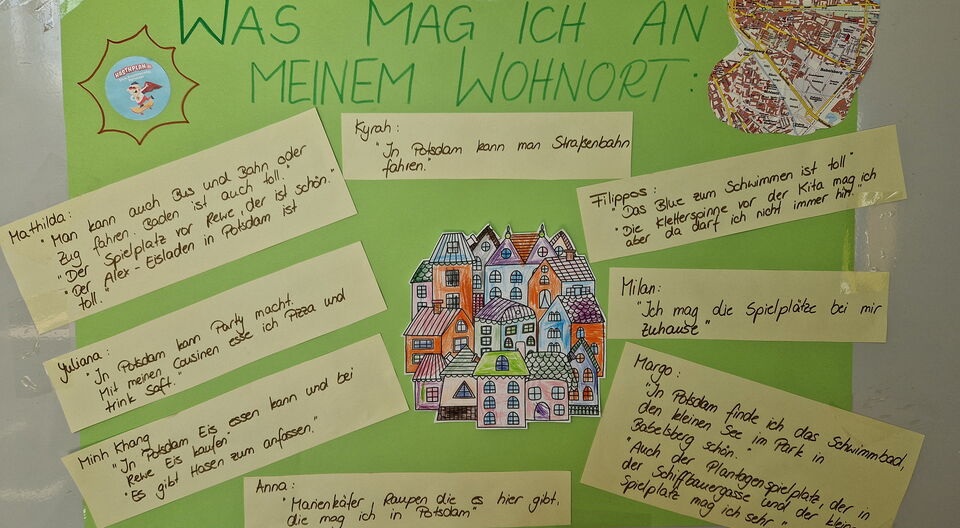 WAS MAG ICH AN
MEINEM WOHNORT:
Kyrah:
"In Potsdam kann man Straßenbahn
fahren."
Mathilda:
"Man kann auch Bus und Bahn oder
Zug fahren. Baden ist auch toll."
"Der Spielplatz vor Rewe, der ist schön."
"Der Alex-Eisladen in Potsdam ist
toll."
Filippos:
"Das Blue zum Schwimmen ist toll"
"Die Kletterspinne vor der Kita mag ich
aber da darf ich nicht immer hin."
Yuliana:
"In Potsdam kann Party macht.
Mit meinen Cousinen esse ich Pizza und
trink Saft."
Milan:
"Ich mag die Spielplätze bei mir
zuhause"
Minh Khang
"In Potsdam Eis essen kann und bei
Rewe Eis kaufen"
"Es gibt Hasen zum anfassen."
Margo:
"In Potsdam finde ich das Schwimmbad,
den kleinen See im Park in
Babelsberg schön."
"Auch der Plantagenspielplatz, der in
der Schiffbauergasse und der kleine
Spielplatz mag ich sehr"
Anna:
"Marienkäfer, Raupen die es hier gibt,
die mag ich in Potsdam"